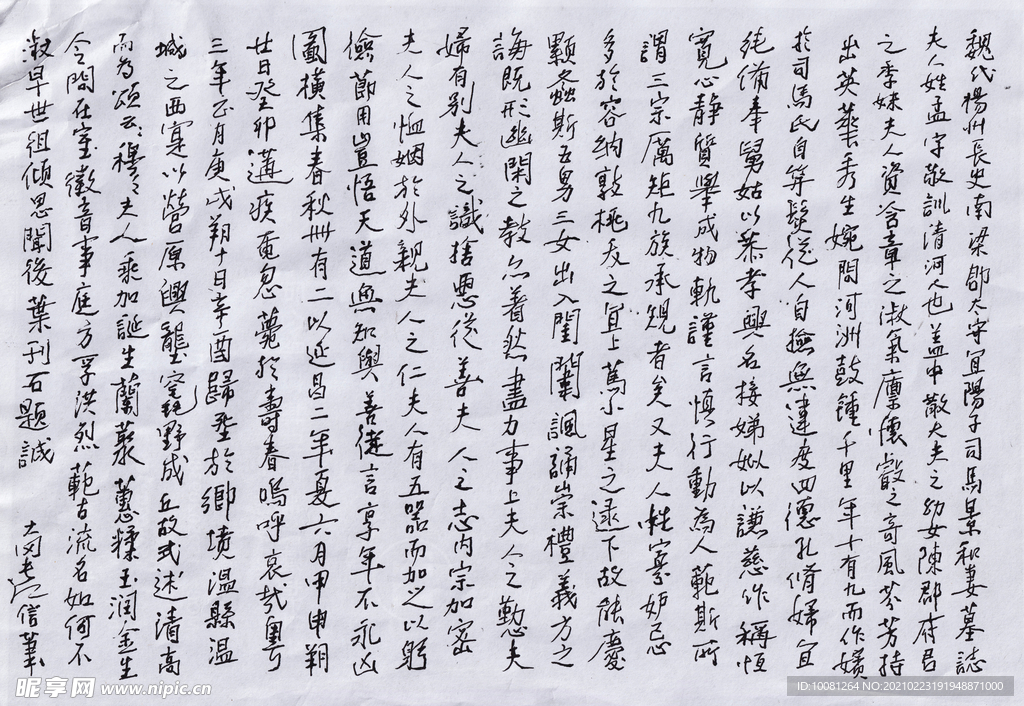 魏代楊州長史南梁郡太守宜陽子司馬景和妻墓誌
夫人姓孟字敬訓清河人也盖中散大夫之幼女陳郡府君
之季妹夫人資含章之淑氣廩懷叡之奇風芬芳特
出英華秀生婉問河洲鼓鍾千里年十有九而作嬪
扵司馬氏自笄髮從人自撿無違度四德孔脩婦宜
純備奉舅姑以恭孝興名接娣姒以謙慈作稱恒
寬心静質舉成物軌謹言慎行動為人範斯所
謂三宗厲矩九族承規者矣又夫人性寡妒忌
多扵容納敦桃夭之宜上篤小星之逮下故能慶
顯螽斯五男三女出入閨闈諷誦崇禮義方之
誨既形幽閑之教亦着然盡力事上夫人之懃夫
婦有別夫人之識捨惡從善夫人之志内宗加密
夫人之恤姻於外親夫人之仁夫人有五器而加之以躬
儉節用豈悟天道無知與善徒言享年不永凶
圖橫集春秋卅有二以延昌二年夏六月甲申朔
廿日癸卯遘疾奄忽薨扵壽春嗚呼哀哉粤以
三年正月庚戌朔十日辛酉歸塟扵鄉墳温縣温
城之西寔以營原興壟窀野成丘故式述清高
而為頌云穆穆夫人乘加誕生蘭蘂蕙糅玉润金生
令問在室徽音事庭方孚洪烈範古流名如何不
淑早世徂傾思聞後葉刊石題誠
信筆
昵享网 www.nipic.cn
ID:10081264 NO:20210223191948871000